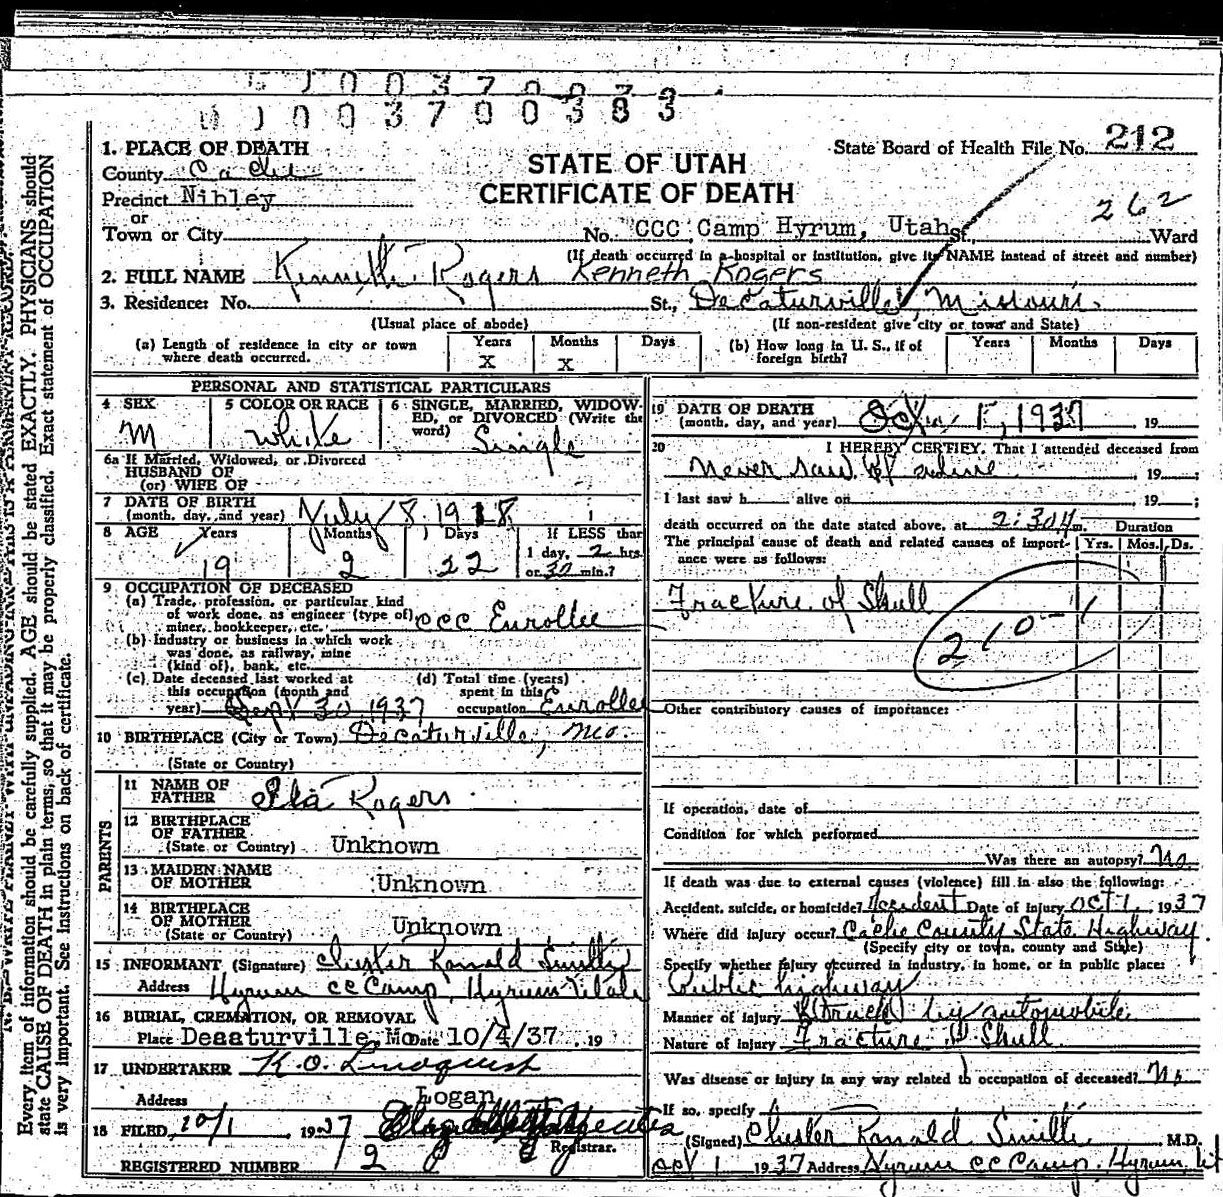 0 0 3 7 0 0
0 0 3 7 0 0 3 8 3
1. PLACE OF DEATH
County Cache
Precinct Nibley
or
Town or City
STATE OF UTAH
CERTIFICATE OF DEATH
State Board of Health File No. 212
262
No. CCC Camp Hyrum, Utah St., Ward
(If death occurred in a hospital or institution, give its NAME instead of street and number)
2. FULL NAME Kenneth Rogers Kenneth Rogers
3. Residence: No. St., Decaturville, Missouri.
(Usual place of abode) (If non-resident give city or town and State)
(a) Length of residence in city or town where death occurred. Years X Months X Days
(b) How long in U. S., if of foreign birth? Years Months Days
PERSONAL AND STATISTICAL PARTICULARS
4 SEX M
5 COLOR OR RACE White
6 SINGLE, MARRIED, WIDOWED, or DIVORCED (Write the word) Single
6a If Married, Widowed, or Divorced
HUSBAND OF
(or) WIFE OF
7 DATE OF BIRTH
(month, day, and year) July 8, 1918
8 AGE Years 19 Months 2 Days 22 If LESS than
1 day, 2 hrs.
or 30 min.?
9 OCCUPATION OF DECEASED
(a) Trade, profession, or particular kind
of work done, as engineer (type of)
miner, bookkeeper, etc. CCC Enrollee
(b) Industry or business in which work
was done, as railway, mine
(kind of), bank, etc.
(c) Date deceased last worked at
this occupation (month and
year) Sept 30 1937
(d) Total time (years)
spent in this
occupation Enrollee
10 BIRTHPLACE (City or Town) Decaturville, Mo.
(State or Country)
PARENTS
11 NAME OF
FATHER Rogers
12 BIRTHPLACE
OF FATHER
(State or Country) Unknown
13 MAIDEN NAME
OF MOTHER Unknown
14 BIRTHPLACE
OF MOTHER
(State or Country) Unknown
15 INFORMANT (Signature) Chester Ronald Smith
Address Hyrum CC Camp, Hyrum Utah
16 BURIAL, CREMATION, OR REMOVAL
Place Decaturville, Mo Date 10/4/37 . 19
17 UNDERTAKER K. O. Lindquist
Address Logan
18 FILED, 10/1 1937
Registrar.
REGISTERED NUMBER 2
19 DATE OF DEATH
(month, day, and year) Oct 1, 1937 19
20 I HEREBY CERTIFY, That I attended deceased from
Never saw alive , 19 ;
I last saw h alive on , 19 ;
death occurred on the date stated above, at 2:30 m. Duration
The principal cause of death and related causes of importance were as follows: Yrs. Mos. Ds.
Fracture of Skull
210-1
Other contributory causes of importance:
If operation, date of
Condition for which performed
Was there an autopsy? No.
If death was due to external causes (violence) fill in also the following:
Accident, suicide, or homicide? Accident Date of injury OCT 1, 1937
Where did injury occur? Cache County State Highway.
(Specify city or town, county and State)
Specify whether injury occurred in industry, in home, or in public place:
Public highway
Manner of injury Struck by automobile
Nature of injury Fracture of Skull
Was disease or injury in any way related to occupation of deceased? No
If so, specify
(Signed) Chester Ronald Smith M.D.
Oct 1 1937 Address, Hyrum CC Camp. Hyrum, Ut
Every item of information should be carefully supplied. AGE should be stated EXACTLY. PHYSICIANS should
state CAUSE OF DEATH in plain terms, so that it may be properly classified. Exact statement of OCCUPATION
is very important. See instructions on back of certificate.